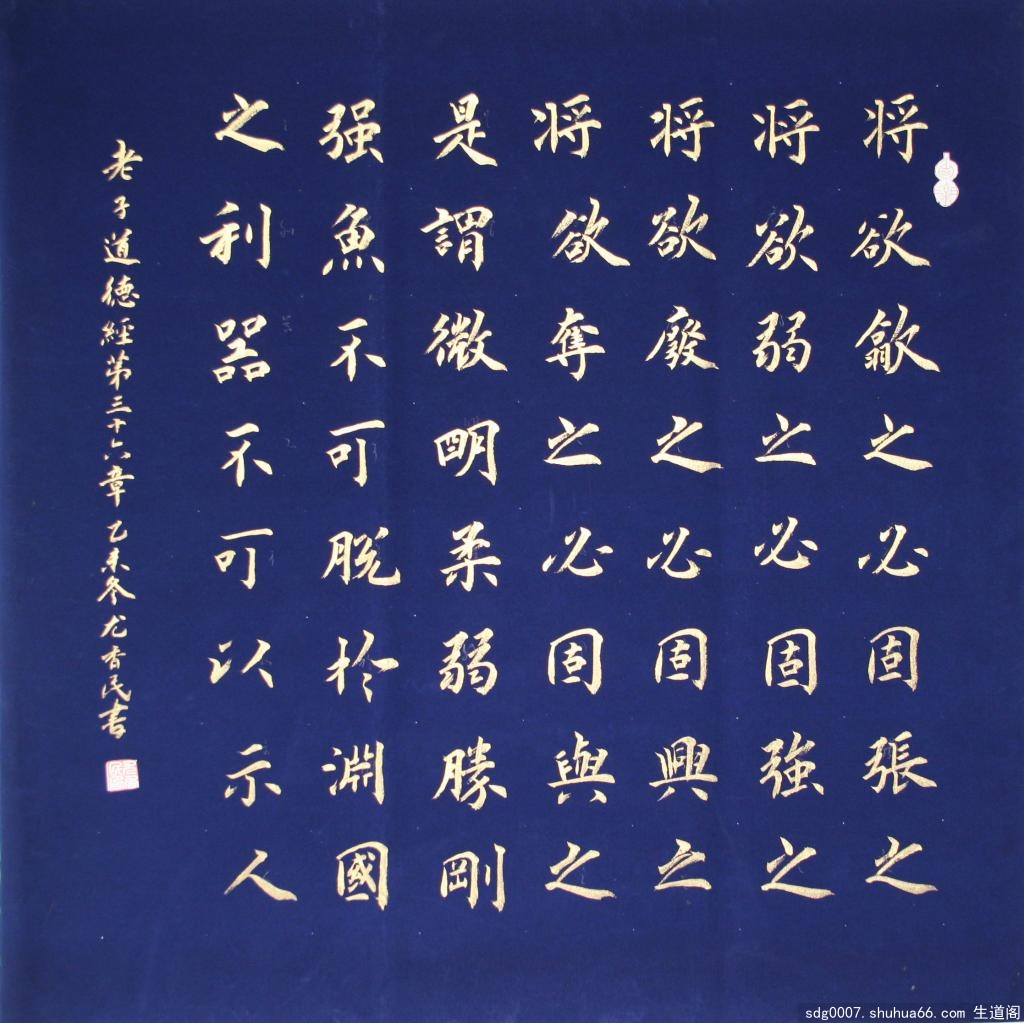 将欲歙之必固張之
将欲弱之必固強之
将欲廢之必固興之
将欲奪之必固與之
是謂微明柔弱勝剛
强魚不可脱於淵國
之利器不可以示人
老子道德經第三十六章乙未冬尤香民书
sdg0007.shuhua66.com 生道阁